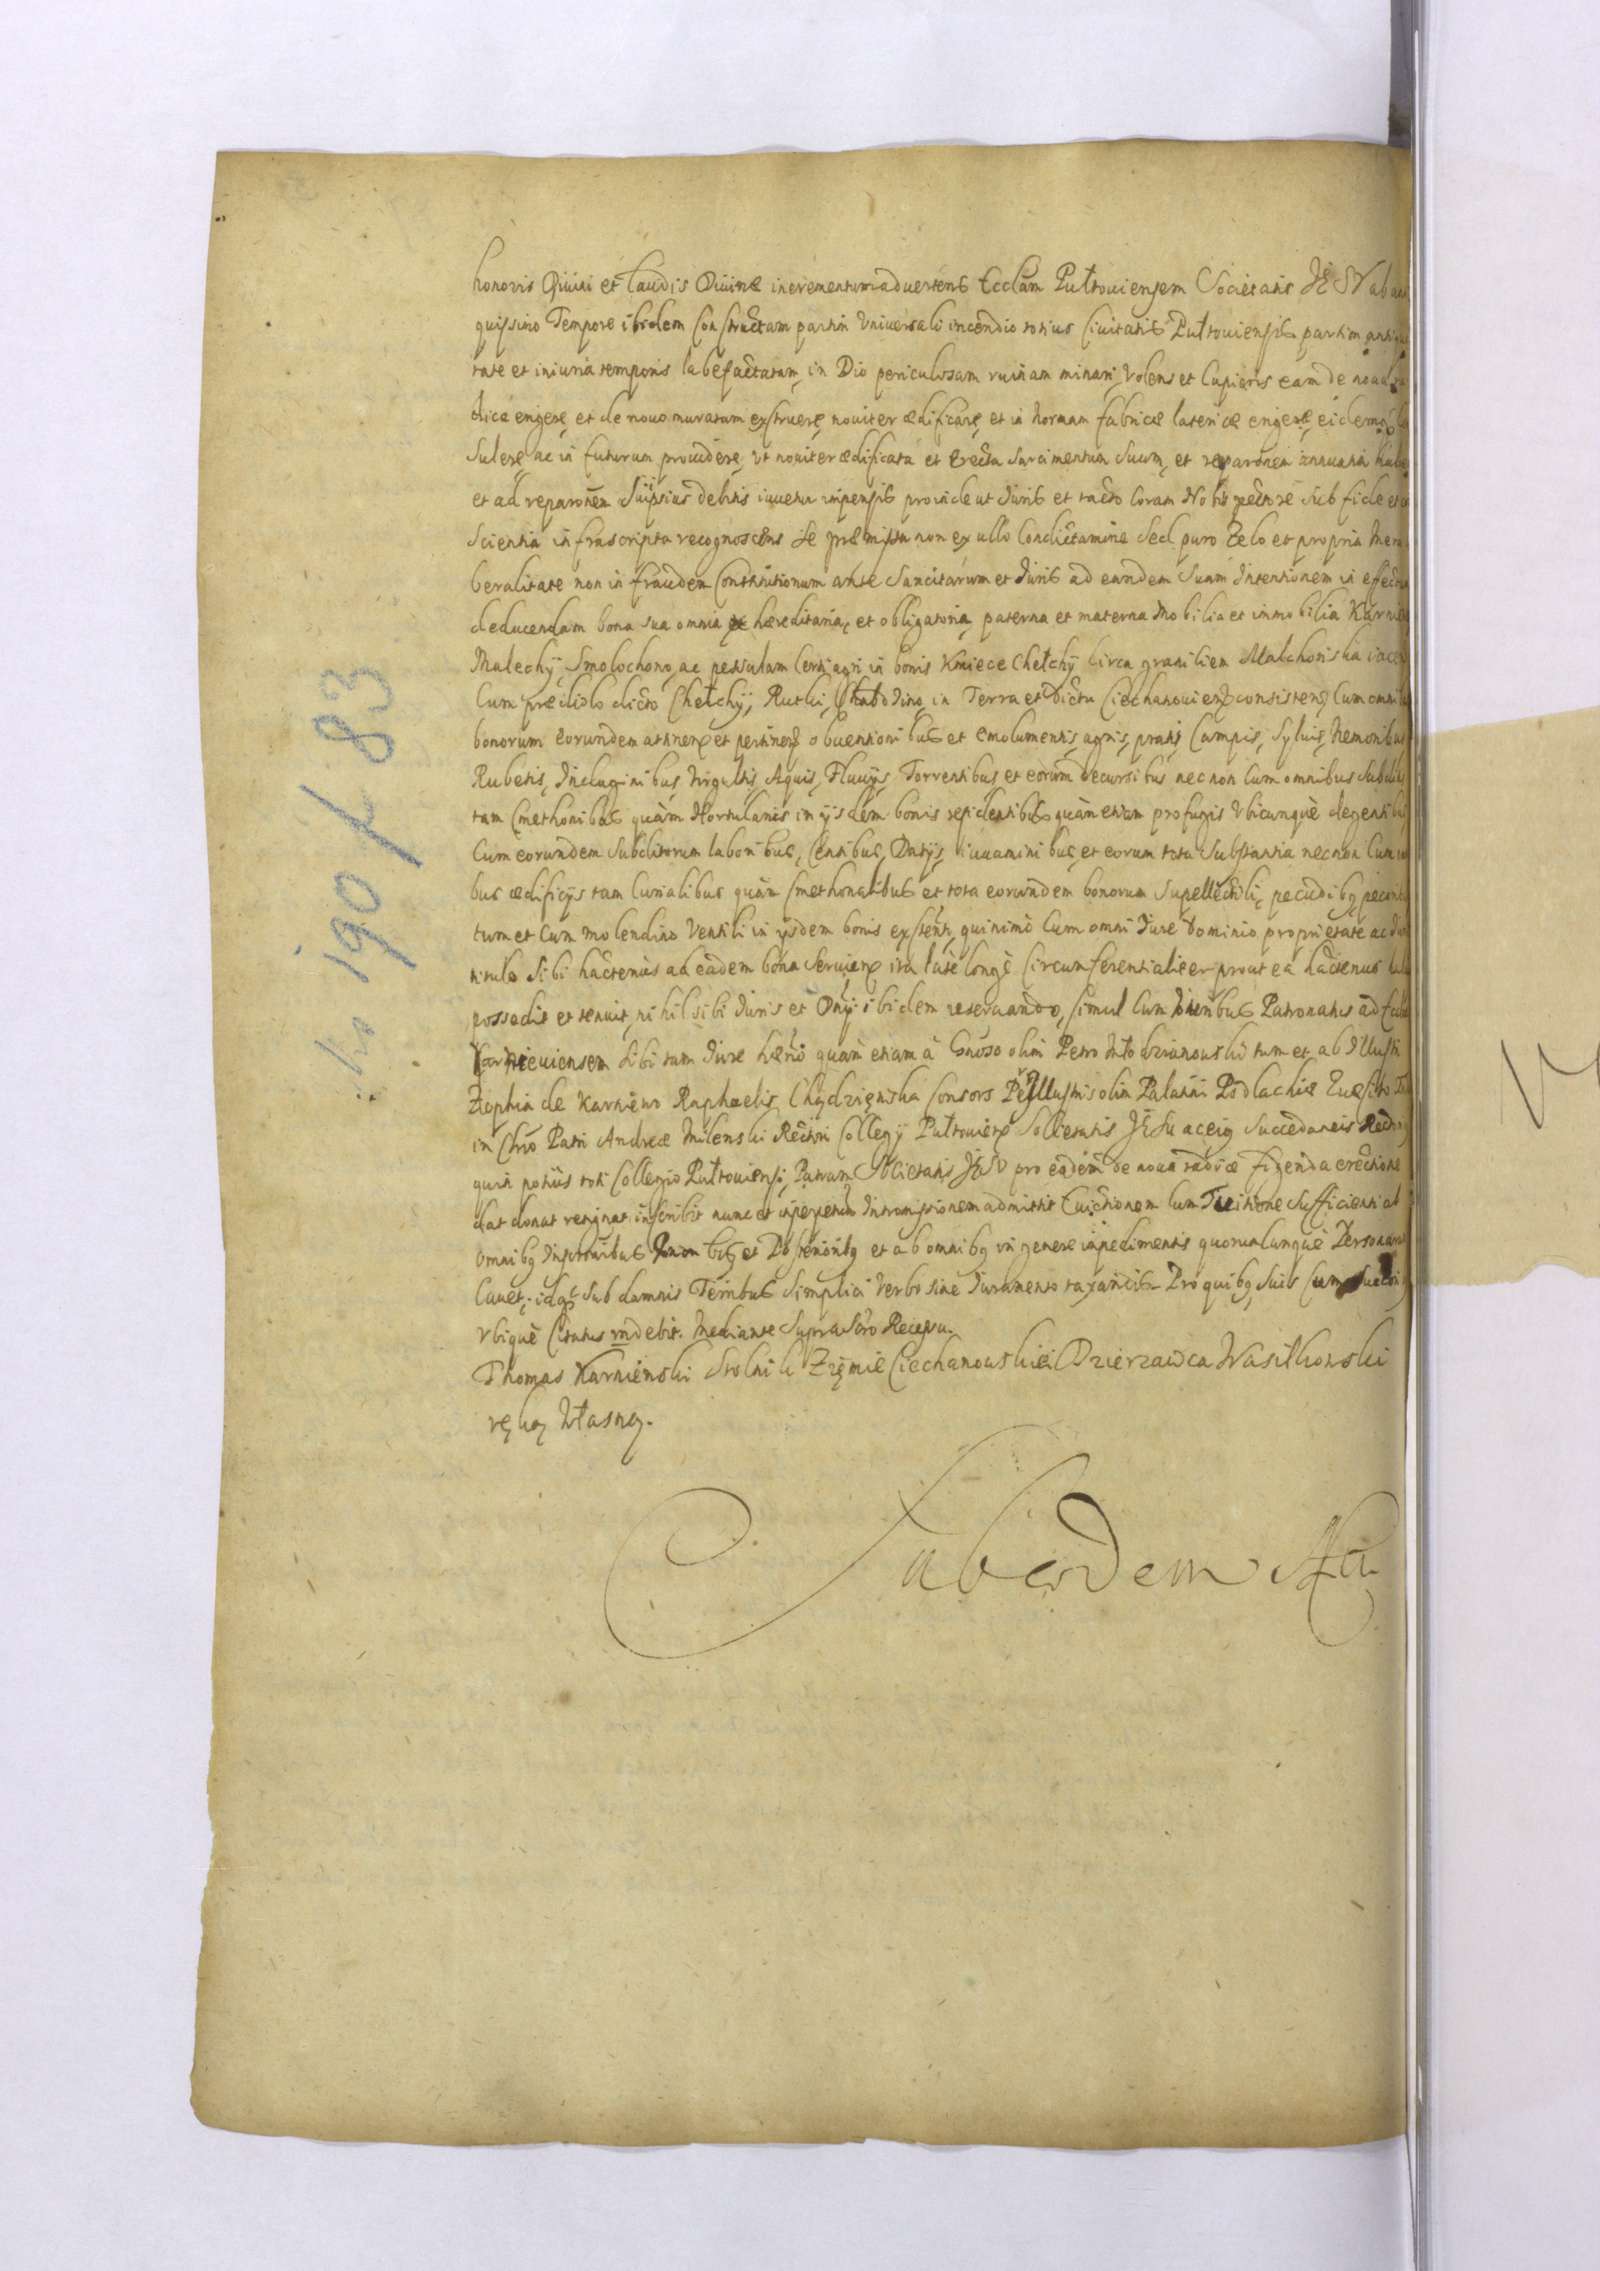 honoris Divini et laudis Divinæ incrementum advertens Ecclam Pułtoviensem Societatis JESV ab an
quissimo Tempore ibidem Constructam partim Universali incendio totius Civitatis Pułtoviensis partim antiqui
tate et iniuria temporis labefactatam, in Dio periculosam ruinam minari, Volens et Cupiens eam de nova ra
dice erigere, et de novo muratam exstruere, noviter ædificare, et in normam fabricæ latericæ erigere, eidemq
sulere, ac in futurum providere, Vt noviter ædificata et Erecta Sarcimentum Suum, et reparõnem annuatim habe
et ad reparõnem Suijpsius debitis iuvetur impensis proinde ut Juris et tacto Coram Nobis pectore Sub fide et co
Scientia infrascripta recognoscens Se præmissa non ex ullo Condictamine Sed puro Zelo et propria Mera
beralitate non in fraudem Constitutionum ante Sancitarum et Juris ad eandem Suam Intentionem in effectum
deducendam bona sua omnia hæreditaria, et obligatoria, paterna et materna Mobilia et immobilia Karnie
Malechy, Smolochowo, ac peculam Certi agri in bonis Kmiece Chełchy Circa graniliem Malchoriska iacen
Cum prædiolo dicto Chełchy, Rutki, in Terra et Dictu Ciechanouien consisten Cum omnib
bonorum eorundem attinen et pertinen obventionibus et emolumentis, agris, pratis, Campis, Sylvis, Nemoribus
Rubetis, Indaginibus, Virgultis, Aquis, Fluvijs, Torrentibus, et eorum decursibus nec non Cum omnibus Subditis
tam Cmethonibus quàm Hortulanis in ijsdem bonis residentibus quàm etiam profugis Vbicunquè degentibus
Cum eorundem Subditorum laboribus, Censibus, Datijs, iuvaminibus, et eorum tota Substantia nec non Cum om
bus ædificijs tam Curialibus quàm Cmethonalibus et tota eorundem bonorum Supellectili, pecudibq pecorib
tum et Cum molendino Ventili in ijsdem bonis existen, quinimò Cum omni Jure Dominio proprietate ac Jur
titulo Sibi hactenùs ad eadem bona Servien ita latè longè Circumferentialiter prout ea hactenus hab
possedit et tenuit, nihil sibi Juris et Dnij ibidem reservando, Simul Cum Juribus Patronatus ad Eccl
Karnieviensem Sibi tam Jure hærio quàm etiam à Gnoso olim Petro Dobrzanowski tum et ab Illustri
Zophia de Karniewo Raphaelis Chądzyńska Consors Perillustris olim Palatini Podlachiæ
in Chrõ Patri Andreæ Milenski Rectori Collegij Pułtovien Societatis JESu ac eiq Succedaneis Recto
quin potiùs toti Collegio Pułtoviensi, Patrum Societatis JESV pro eadem de nova radice figenda erectione
dat donat resignat inscribit nunc et in perpetuũ Intromissionem admittit Evictionem Cum Tuitione Sufficienti ab
Omnibq Inscriptionibus et Posterioribq et ab omnibq in genere impedimentis quorumcunque Personarum
Cavet, idqe Sub damnis Terribus Simplici Verbo sine Juramento taxandis. Pro quibq Suis Cum
Vbiquè Citatus rñdebit. Mediante Suprascto Recessu.
Thomas Karniewski Stolnik Ziemie Ciechanowskiei Dzierzawca Wasilkowski
ręką Własną.
ab eisdem Act
No 190/83